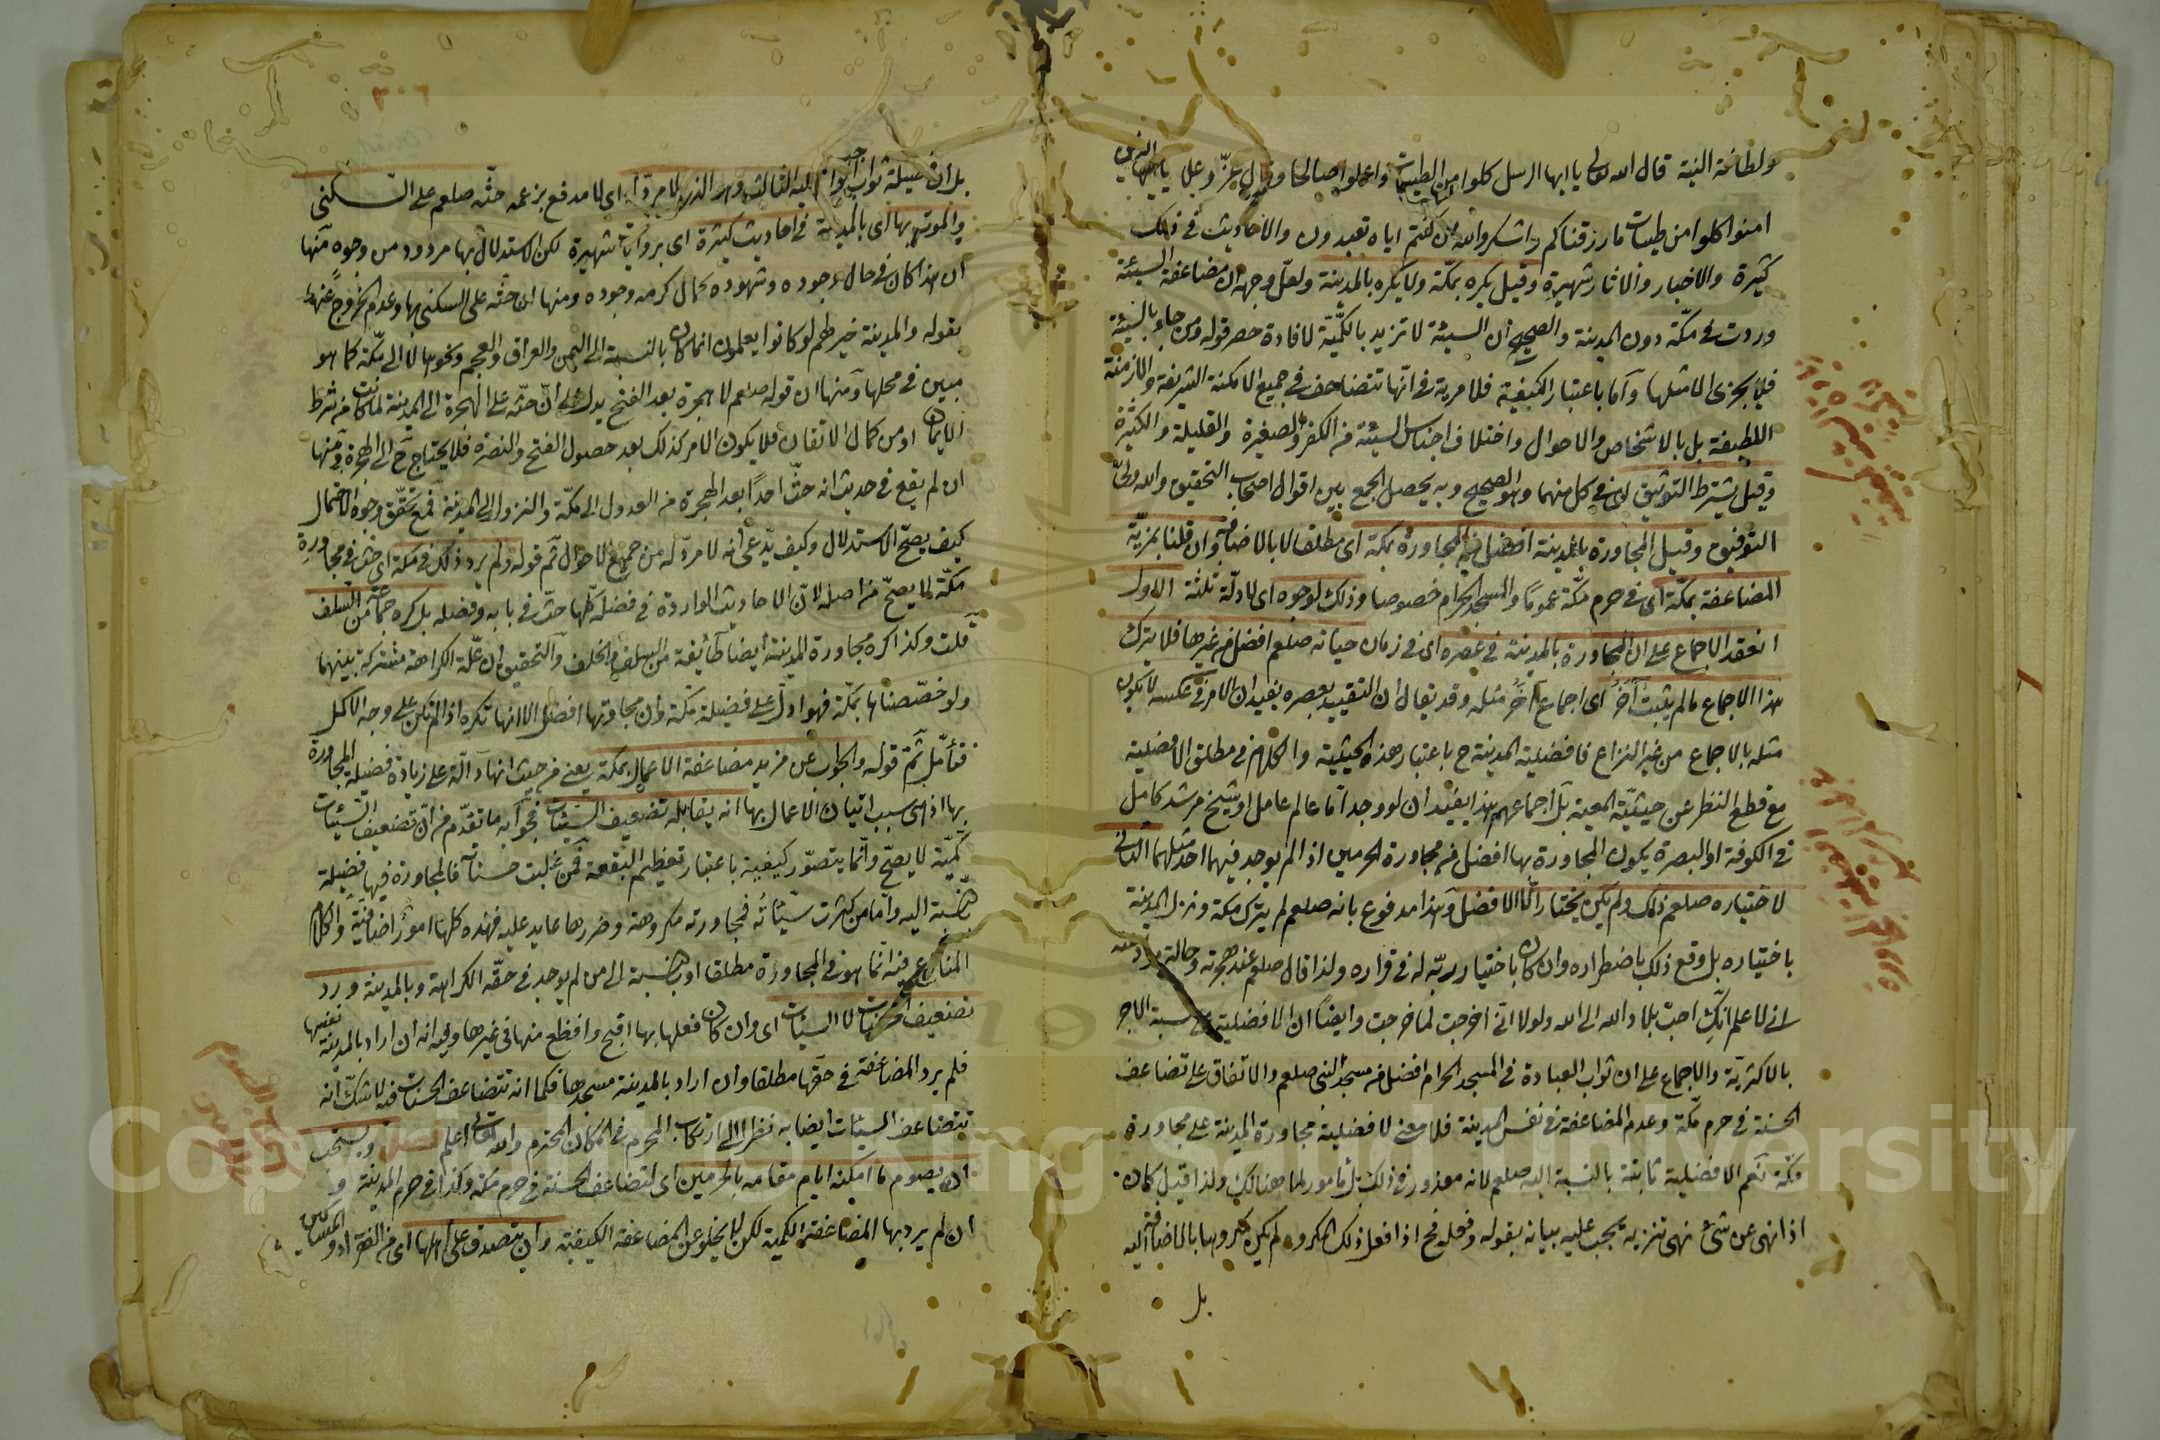 ولطافة النية قال الله تعالى يا ايها الرسل كلوا من الطيبات واعملوا صالحا وقال عز وجل يا ايها الذين
امنوا كلوا من طيبات ما رزقناكم واشكروا لله ان كنتم اياه تعبدون والاحاديث في ذلك
كثيرة والاخبار والاثار شهيرة وقيل يكره بمكة ولا يكره بالمدينة ولعل وجهه ان مضاعفة السيئة
وردت في مكة دون المدينة والصحيح ان السيئة لا تزيد بالكمية لافادة حصر قوله ومن جاء بالسيئة
فلا يجزى الا مثلها وأما باعتبار الكيفية فلا مرية في انها تتضاعف في جميع الامكنة الشريفة والازمنة
اللطيفة بل بالاشخاص والاحوال واختلاف اجناس السيئة من الكفر والصغيرة والقليلة والكثيرة
وقيل يشترط التوثيق اى في كل منهما وهو الصحيح وبه يحصل الجمع بين اقوال اصحاب التحقيق والله ولي
التوفيق وقيل المجاورة بالمدينة افضل من المجاورة بمكة اى مطلقا لا بالاضافة وان قلنا بمزية
المضاعفة بمكة اى في حرم مكة عموما والمسجد الحرام خصوصا وذلك لوجوه اى لادلة ثلثة الاول
انعقد الاجماع على ان المجاورة بالمدينة في عصره اى في زمان حياته صلعم افضل من غيرها فلا يترك
هذا الاجماع ما لم يثبت آخر اى اجماع آخر مثله وقد يقال ان التقييد بعصره يفيد ان الامر في عكسه لا يكون
مثله بالاجماع من غير النزاع فافضلية المدينة ح باعتبار هذه الحيثية والكلام في مطلق الافضلية
مع قطع النظر عن حيثية المعية بل اجماعهم هذا يفيد ان لو وجد آما عالم عامل او شيخ مرشد كامل
في الكوفة او البصرة يكون المجاورة بها افضل من مجاورة الحرمين اذا لم يوجد فيهما احد مثلهما الثاني
لاختياره صلعم ذلك ولم يكن يختار الا الافضل وهذا مدفوع بانه صلعم لم يترك مكة ونزل المدينة
باختياره بل وقع ذلك باضطراره وان كان باختيار ربه له في قراره ولذا قال صلعم عند هجرته وحالة
اني لا علم انك احب بلاد الله الى الله ولولا اني اخرجت لما خرجت وايضا ان الافضلية في نسبة الاجر
بالاكثرية والاجماع على ان ثواب العبادة في المسجد الحرام افضل من مسجد النبي صلعم والاتفاق على تضاعف
الحسنة في حرم مكة وعدم المضاعفة في نفس المدينة فلا معنى لافضلية مجاورة المدينة على مجاورة
مكة نعم الافضلية ثابتة بالنسبة اليه صلعم لانه معذور في ذلك بل مأمور لما هنالك ولذا قيل كان
اذا نهى عن شئ نهى تنزيه يجب عليه بيانه بقوله وفعله فح اذا فعل ذلك المكروه لم يكن مكروها بالاضافة اليه
بل
٣٠٦
بل ان فعله ثواب اليه الثالث وهو الذى لا مرد له اى لا مدفع بزعمه حثه صلعم على السكنى
والموت بها اى بالمدينة في احاديث كثيرة اى بروايات شهيرة لكن الاستدلال بها مردود من وجوه منها
ان هذا كان في حال وجوده وشهوده كمال كرمه وجوده ومنها ان حثه على السكنى بها وعدم الخروج عنها
بقوله والمدينة خير لهم لو كانوا يعلمون انما كان بالنسبة الى اليمن والعراق والعجم ونحوها لا الى مكة كما هو
مبين في محلها ومنها ان قوله صلعم لا هجرة بعد الفتح يدل على ان حثه على الهجرة الى المدينة لما كانت من شرط
الايمان او من كمال الاتقان فلا يكون الامر كذلك بعد حصول الفتح والنصرة فلا يحتاج ح الى الهجرة ومنها
ان لم يقع في حديث انه حث احدا بعد الهجرة من العدول الى مكة والنزول الى المدينة فمع تحقق وجوه الاحتمال
كيف يصح الاستدلال وكيف يدعى انه لا مرد له من جميع الاحوال ثم قوله ولم يرد ذلك في مكة اى حث في مجاورة
مكة لا يصح من اصله لان الاحاديث الواردة في فضلها كلها حث في بابه وفضله بل كره جماعة من السلف
قلت وكذا كره مجاورة المدينة ايضا طائفة من السلف والخلف والتحقيق ان علة الكراهة مشتركة بينهما
ولو خصصناها بمكة فهو ادل على فضيلة مكة وان مجاورتها افضل الا انها تكره اذا لم تكن على وجه الاكمل
فتأمل ثم قوله والجواب عن مزيد مضاعفة الاعمال بمكة يعنى من حيث انها دالة على زيادة فضيلة المجاورة
بها اذ هى سبب اتيان الاعمال بها انه يقابله تضعيف السيئات فجوابه ما تقدم من ان تضعيف السيئات
كمية لا يصح وانما يتصور كيفية باعتبار تعظيم البقعة فمن غلبت حسناته فالمجاورة فيها فضيلة
بالنسبة اليه واما من كثرت سيئاته فمجاورته مكروهة وضررها عايد عليه فهذه كلها امور اضافية والكلام
المتنازع فيه انما هو في المجاورة مطلقا او بالنسبة الى من لم يوجد في حقه الكراهة وبالمدينة ورد
تضعيف الحسنات لا السيئات اى وان كان فعلها بها اقبح وافظع منها في غيرها وفيه انه ان اراد بالمدينة نفسها
فلم يرد المضاعفة في حقها مطلقا وان اراد بالمدينة مسجدها فكما انه تتضاعف الحسنات فيه لا شك انه
تتضاعف السيئات ايضا به نظرا الى ارتكاب المحرم في المكان المحترم والله تعالى اعلم ويستحب
ان يصوم ما امكنه ايام مقامه بالحرمين اى لتضاعف الحسنة في حرم مكة وكذا في حرم المدينة و
ان لم يرد بها المضاعفة الكمية لكن لا يخلو عن المضاعفة الكيفية وان يتصدق على اهلها اى من الفقراء والمساكين